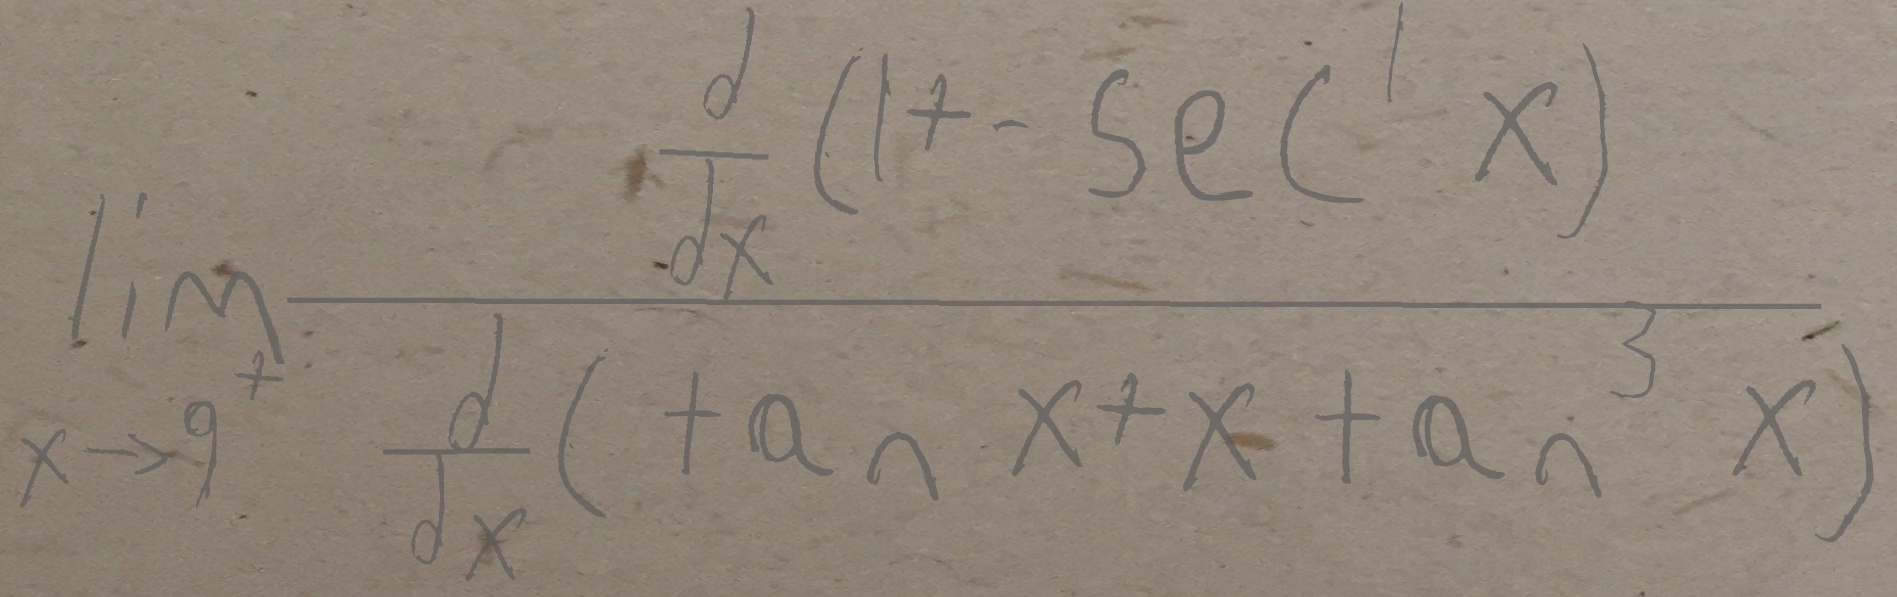 \lim_{x \to 9^{+}} \frac{\frac{d}{dx}(1+-\sec^{1} x)}{\frac{d}{dx}(\tan x+x\tan^{3} x)}